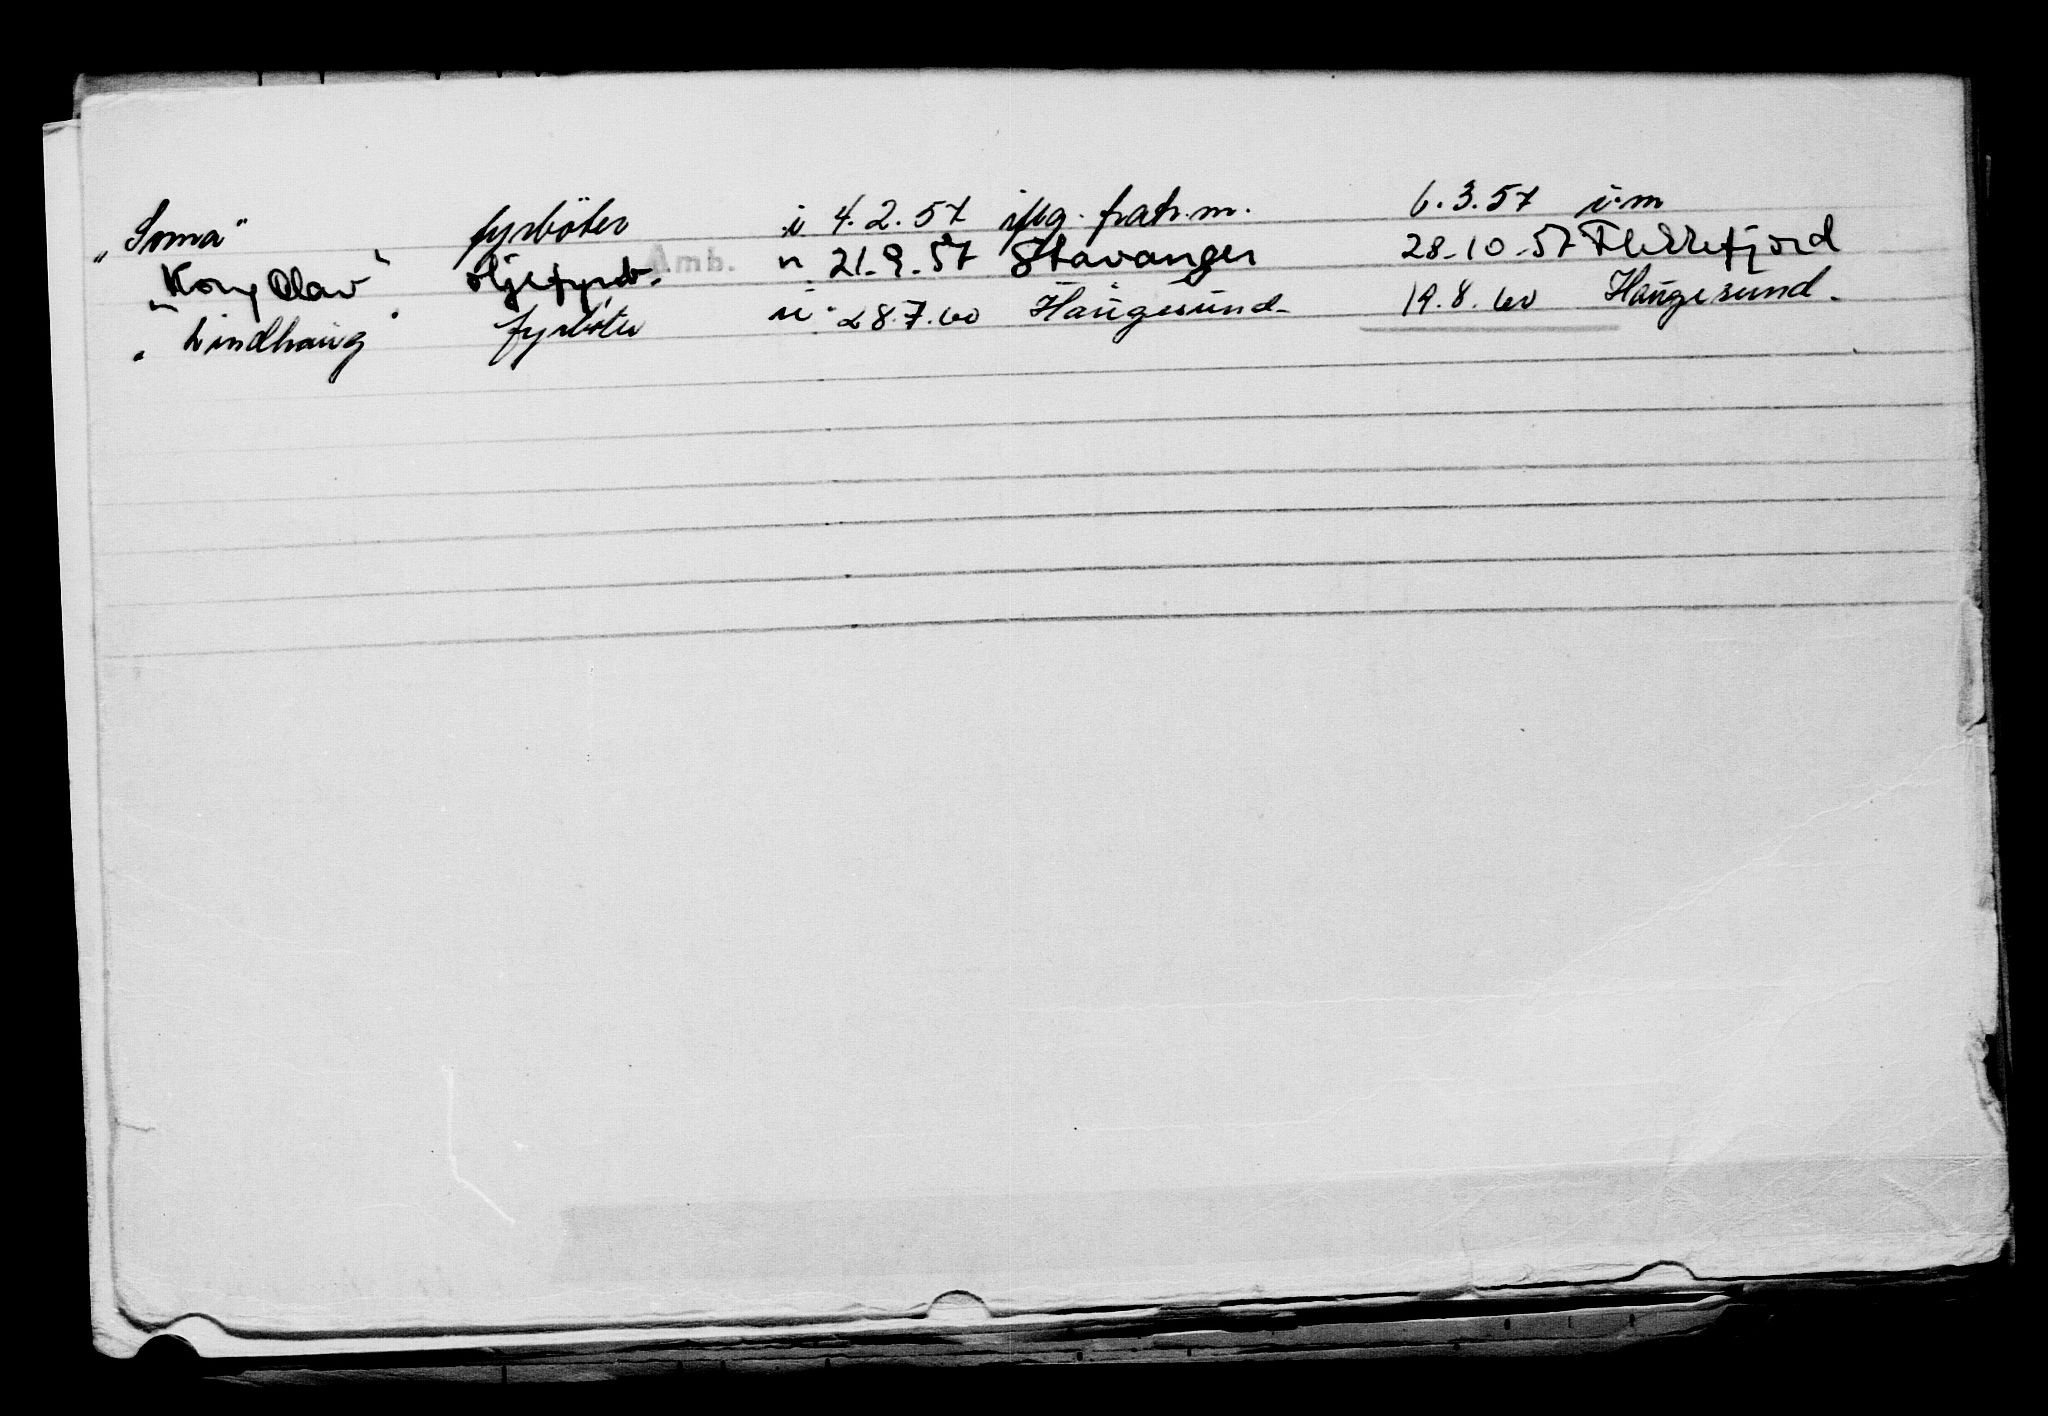 "Soma" fyrböter i 4.2.57 iflg. patr.m. 6.3.57 i.m
"Kong Olav" oljefyrb. Amb. n 21.9.57 Stavanger 28.10.57 Flekkefjord
"Lindhaug" fyrböter n 28.7.60 Haugesund 19.8.60 Haugesund.